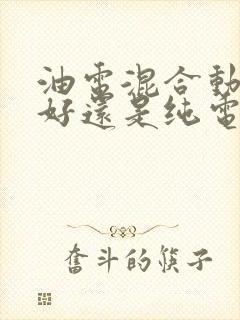 油電混合動
好還是纯電
奮斗的筷子